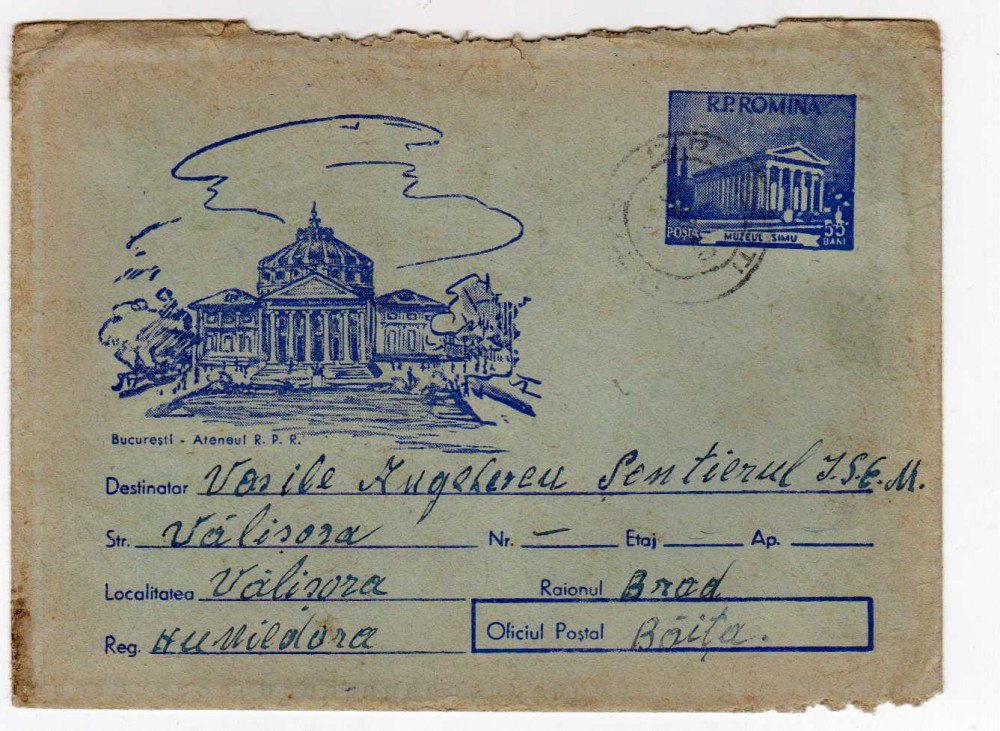 R.P. ROMINA
POSTA MUZEUL SIMU 55 BANI
București - Ateneul R. P. R.
Destinatar Vasile Șentierul I.S.E.M.
Str. Vălișora Nr. — Etaj Ap.
Localitatea Vălișora Raionul Brad
Reg. Oficiul Poștal Băița.